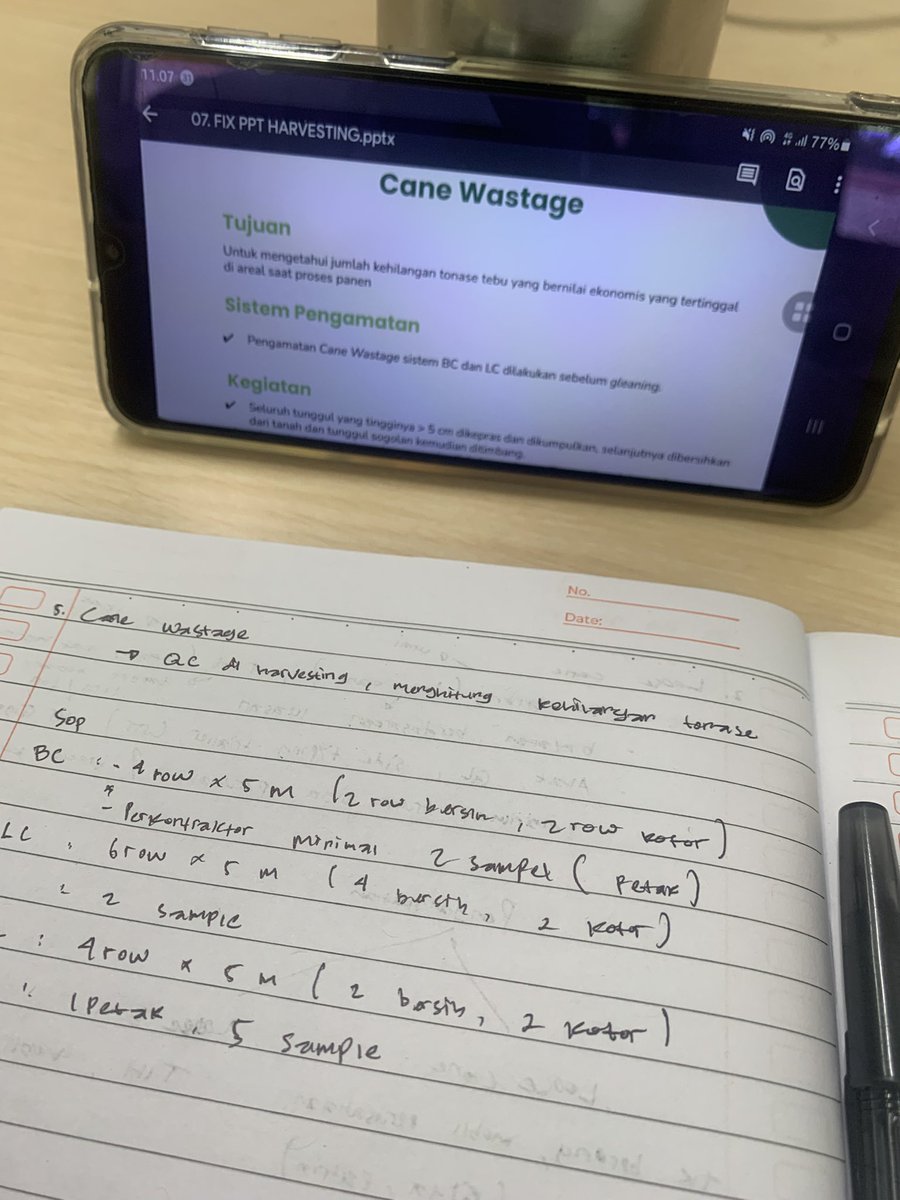 11.07
07. FIX PPT HARVESTING.pptx
4G
77%
Cane Wastage
Tujuan
Untuk mengetahui jumlah kehilangan tonase tebu yang bernilai ekonomis yang tertinggal
di areal saat proses panen
Sistem Pengamatan
✔ Pengamatan Cane Wastage sistem BC dan LC dilakukan sebelum gleaning.
Kegiatan
✔ Seluruh tunggul yang tingginya > 5 cm dikepras dan dikumpulkan, selanjutnya dibersihkan
dari tanah dan tunggul sogolan kemudian ditimbang.
No.
Date:
5. Cane Wastage
→ QC di harvesting, menghitung kehilangan tonase
SOP
BC : - 4 row x 5 m (2 row bersih, 2 row kotor)
- Perkontraktor minimal 2 sampel (Petak)
LC : 6 row x 5 m (4 bersih, 2 kotor)
: 2 sample
: 4 row x 5 m (2 bersih, 2 kotor)
: 1 Petak 5 sample